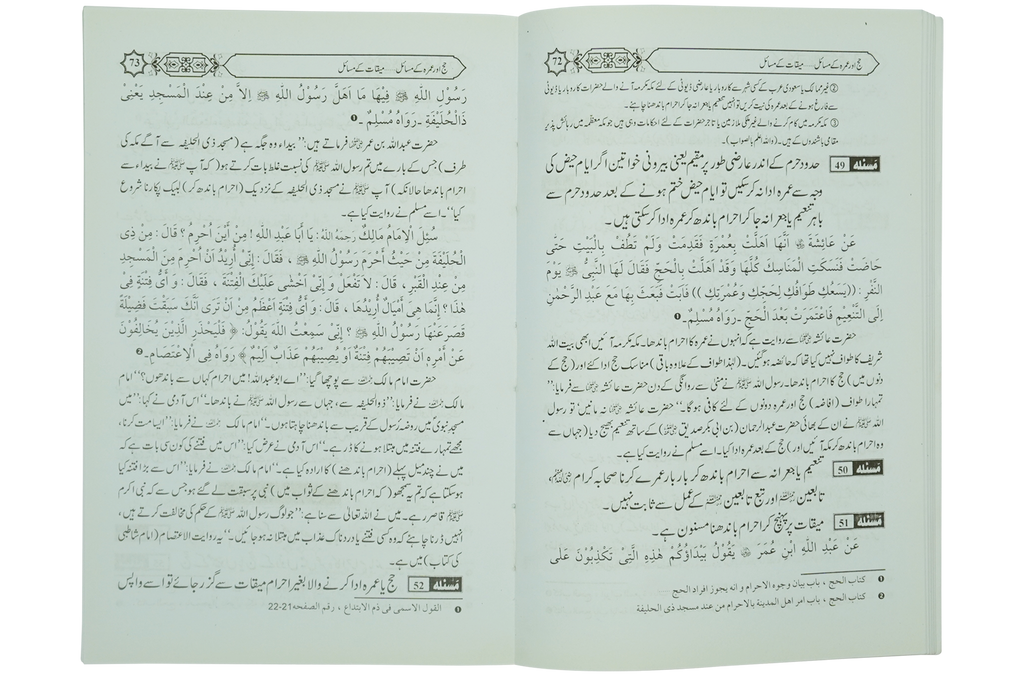 حج اور عمرہ کے مسائل ..... میقات کے مسائل
72
② غیر ممالک یا سعودی عرب کے کسی شہر سے کاروبار یا عارضی ڈیوٹی کے لئے مکہ مکرمہ آنے والے حضرات کاروبار یا ڈیوٹی
سے فارغ ہونے کے بعد عمرہ کی نیت کریں تو انہیں تنعیم یا جعرانہ جا کر احرام باندھنا چاہئے۔
③ مکہ مکرمہ میں کام کرنے والے غیر ملکی ملازمین یا تاجر حضرات کے لئے احکامات وہی ہیں جو مکہ معظمہ میں رہائش پذیر
مقامی باشندوں کے ہیں۔ (واللہ اعلم بالصواب)
مسئلہ 49 حدود حرم کے اندر عارضی طور پر مقیم یعنی بیرونی خواتین اگر ایام حیض کی
وجہ سے عمرہ ادا نہ کر سکیں تو ایام حیض ختم ہونے کے بعد حدود حرم سے
باہر تنعیم یا جعرانہ جا کر احرام باندھ کر عمرہ ادا کر سکتی ہیں۔
عَنْ عَائِشَةَ ؓ اَنَّهَا اَهَلَّتْ بِعُمْرَةٍ فَقَدِمَتْ وَلَمْ تَطُفْ بِالْبَيْتِ حَتّٰى
حَاضَتْ فَنَسَكَتِ الْمَنَاسِكَ كُلَّهَا وَقَدْ اَهَلَّتْ بِالْحَجِّ فَقَالَ لَهَا النَّبِىُّ ﷺ يَوْمَ
النَّفْرِ : ((يَسَعُكِ طَوَافُكِ لِحَجِّكِ وَعُمْرَتِكِ )) فَاَبَتْ فَبَعَثَ بِهَا مَعَ عَبْدِ الرَّحْمٰنِ
اِلَى التَّنْعِيْمِ فَاعْتَمَرَتْ بَعْدَ الْحَجِّ ۔ رَوَاهُ مُسْلِمٌ۔ ❶
حضرت عائشہ ؓ سے روایت ہے کہ انہوں نے عمرہ کا احرام باندھا۔ مکہ مکرمہ آئیں ابھی بیت اللہ
شریف کا طواف نہیں کیا تھا کہ حائضہ ہو گئیں۔ (لہٰذا طواف کے علاوہ باقی) مناسک حج ادا کئے اور (حج کے
دنوں میں) حج کا احرام باندھا۔ رسول اللہ ﷺ نے منٰی سے روانگی کے دن حضرت عائشہ ؓ سے فرمایا:’’
تمہارا طواف (افاضہ) حج اور عمرہ دونوں کے لئے کافی ہوگا۔‘‘ حضرت عائشہ ؓ نہ مانیں تو رسول
اللہ ﷺ نے ان کے بھائی حضرت عبدالرحمان (بن ابی بکر صدیق ؓ) کے ساتھ تنعیم بھیج دیا (جہاں سے
وہ احرام باندھ کر مکہ آئیں اور) حج کے بعد عمرہ ادا کیا۔ اسے مسلم نے روایت کیا ہے۔
مسئلہ 50 تنعیم یا جعرانہ سے احرام باندھ کر بار بار عمرے کرنا صحابہ کرام ؓ،
تابعین ؒ اور تبع تابعین ؒ کے عمل سے ثابت نہیں۔
مسئلہ 51 میقات پر پہنچ کر احرام باندھنا مسنون ہے۔
عَنْ عَبْدِ اللّٰهِ ابْنِ عُمَرَ ؓ يَقُوْلُ بَيْدَاؤُكُمْ هٰذِهِ الَّتِىْ تَكْذِبُوْنَ عَلٰى
❶ كتاب الحج ، باب بيان وجوه الاحرام و انه يجوز افراد الحج
❷ كتاب الحج ، باب امر اهل المدينة بالاحرام من عند مسجد ذى الحليفة
حج اور عمرہ کے مسائل ..... میقات کے مسائل
73
رَسُوْلِ اللّٰهِ ﷺ فِيْهَا مَا اَهَلَّ رَسُوْلُ اللّٰهِ ﷺ اِلاَّ مِنْ عِنْدَ الْمَسْجِدِ يَعْنِىْ
ذَالْحُلَيْفَةِ ۔ رَوَاهُ مُسْلِمٌ۔ ❶
حضرت عبداللہ بن عمر ؓ فرماتے ہیں:’’ بیداء وہ جگہ ہے (مسجد ذی الحلیفہ سے آگے مکہ کی
طرف) جس کے بارے میں تم رسول اللہ ﷺ کی نسبت غلط بات کرتے ہو (کہ آپ ﷺ نے بیداء سے
احرام باندھا حالانکہ) آپ ﷺ نے مسجد ذی الحلیفہ کے نزدیک (احرام باندھ کر) لبیک پکارنا شروع
کیا‘‘۔ اسے مسلم نے روایت کیا ہے۔
سُئِلَ الْاِمَامُ مَالِكٌ رَحِمَهُ اللّٰهُ: يَا اَبَا عَبْدِ اللّٰهِ ! مِنْ اَيْنَ اُحْرِمُ ؟ قَالَ : مِنْ ذِى
الْحُلَيْفَةِ مِنْ حَيْثُ اَحْرَمَ رَسُوْلُ اللّٰهِ ﷺ ، فَقَالَ : اِنِّىْ اُرِيْدُ اَنْ اُحْرِمَ مِنَ الْمَسْجِدِ
مِنْ عِنْدِ الْقَبْرِ ، قَالَ : لاَ تَفْعَلْ وَ اِنِّىْ اَخْشٰى عَلَيْكَ الْفِتْنَةَ ، فَقَالَ : وَ اَىُّ فِتْنَةٍ فِىْ
هٰذَا ؟ اِنَّمَا هِىَ اَمْيَالٌ اُرِيْدُهَا ، قَالَ : وَ اَىُّ فِتْنَةٍ اَعْظَمُ مِنْ اَنْ تَرٰى اَنَّكَ سَبَقْتَ فَضِيْلَةً
قَصَرَ عَنْهَا رَسُوْلُ اللّٰهِ ﷺ ؟ اِنِّىْ سَمِعْتُ اللّٰهَ يَقُوْلُ: ﴿ فَلْيَحْذَرِ الَّذِيْنَ يُخَالِفُوْنَ
عَنْ اَمْرِهٖ اَنْ تُصِيْبَهُمْ فِتْنَةٌ اَوْ يُصِيْبَهُمْ عَذَابٌ اَلِيْمٌ ﴾ رَوَاهُ فِى الْاِعْتِصَامِ۔ ❷
حضرت امام مالک ؒ سے پوچھا گیا:’’اے ابو عبداللہ! میں احرام کہاں سے باندھوں؟‘‘ امام
مالک ؒ نے فرمایا:’’ذوالحلیفہ سے، جہاں سے رسول اللہ ﷺ نے باندھا۔‘‘ اس آدمی نے کہا:’’میں
مسجد نبوی میں روضہ رسول کے قریب سے باندھنا چاہتا ہوں۔‘‘ امام مالک ؒ نے فرمایا:’’ایسا مت کرنا،
مجھے تمہارے فتنہ میں مبتلا ہونے کا ڈر ہے۔‘‘ اس آدمی نے عرض کیا:’’اس میں فتنے کی کون سی بات ہے کہ
میں نے چند میل پہلے (احرام باندھنے) کا ارادہ کیا ہے۔‘‘ امام مالک ؒ نے فرمایا:’’اس سے بڑا فتنہ کیا
ہو سکتا ہے کہ تم یہ سمجھو (کہ احرام باندھنے کے ثواب میں) نبی پر سبقت لے گئے ہو جس سے کہ نبی اکرم
ﷺ قاصر رہے۔ میں نے اللہ تعالیٰ سے سنا ہے:’’جو لوگ رسول اللہ ﷺ کے حکم کی مخالفت کرتے ہیں،
انہیں ڈرنا چاہئے کہ وہ کسی فتنے یا دردناک عذاب میں مبتلا نہ ہو جائیں۔‘‘ یہ روایت الاعتصام (امام شاطبی
کی کتاب) میں ہے۔
مسئلہ 52 حج یا عمرہ ادا کرنے والا بغیر احرام میقات سے گزر جائے تو اسے واپس
❶ القول الاسمى فى ذم الابتداع ، رقم الصفحه 21-22